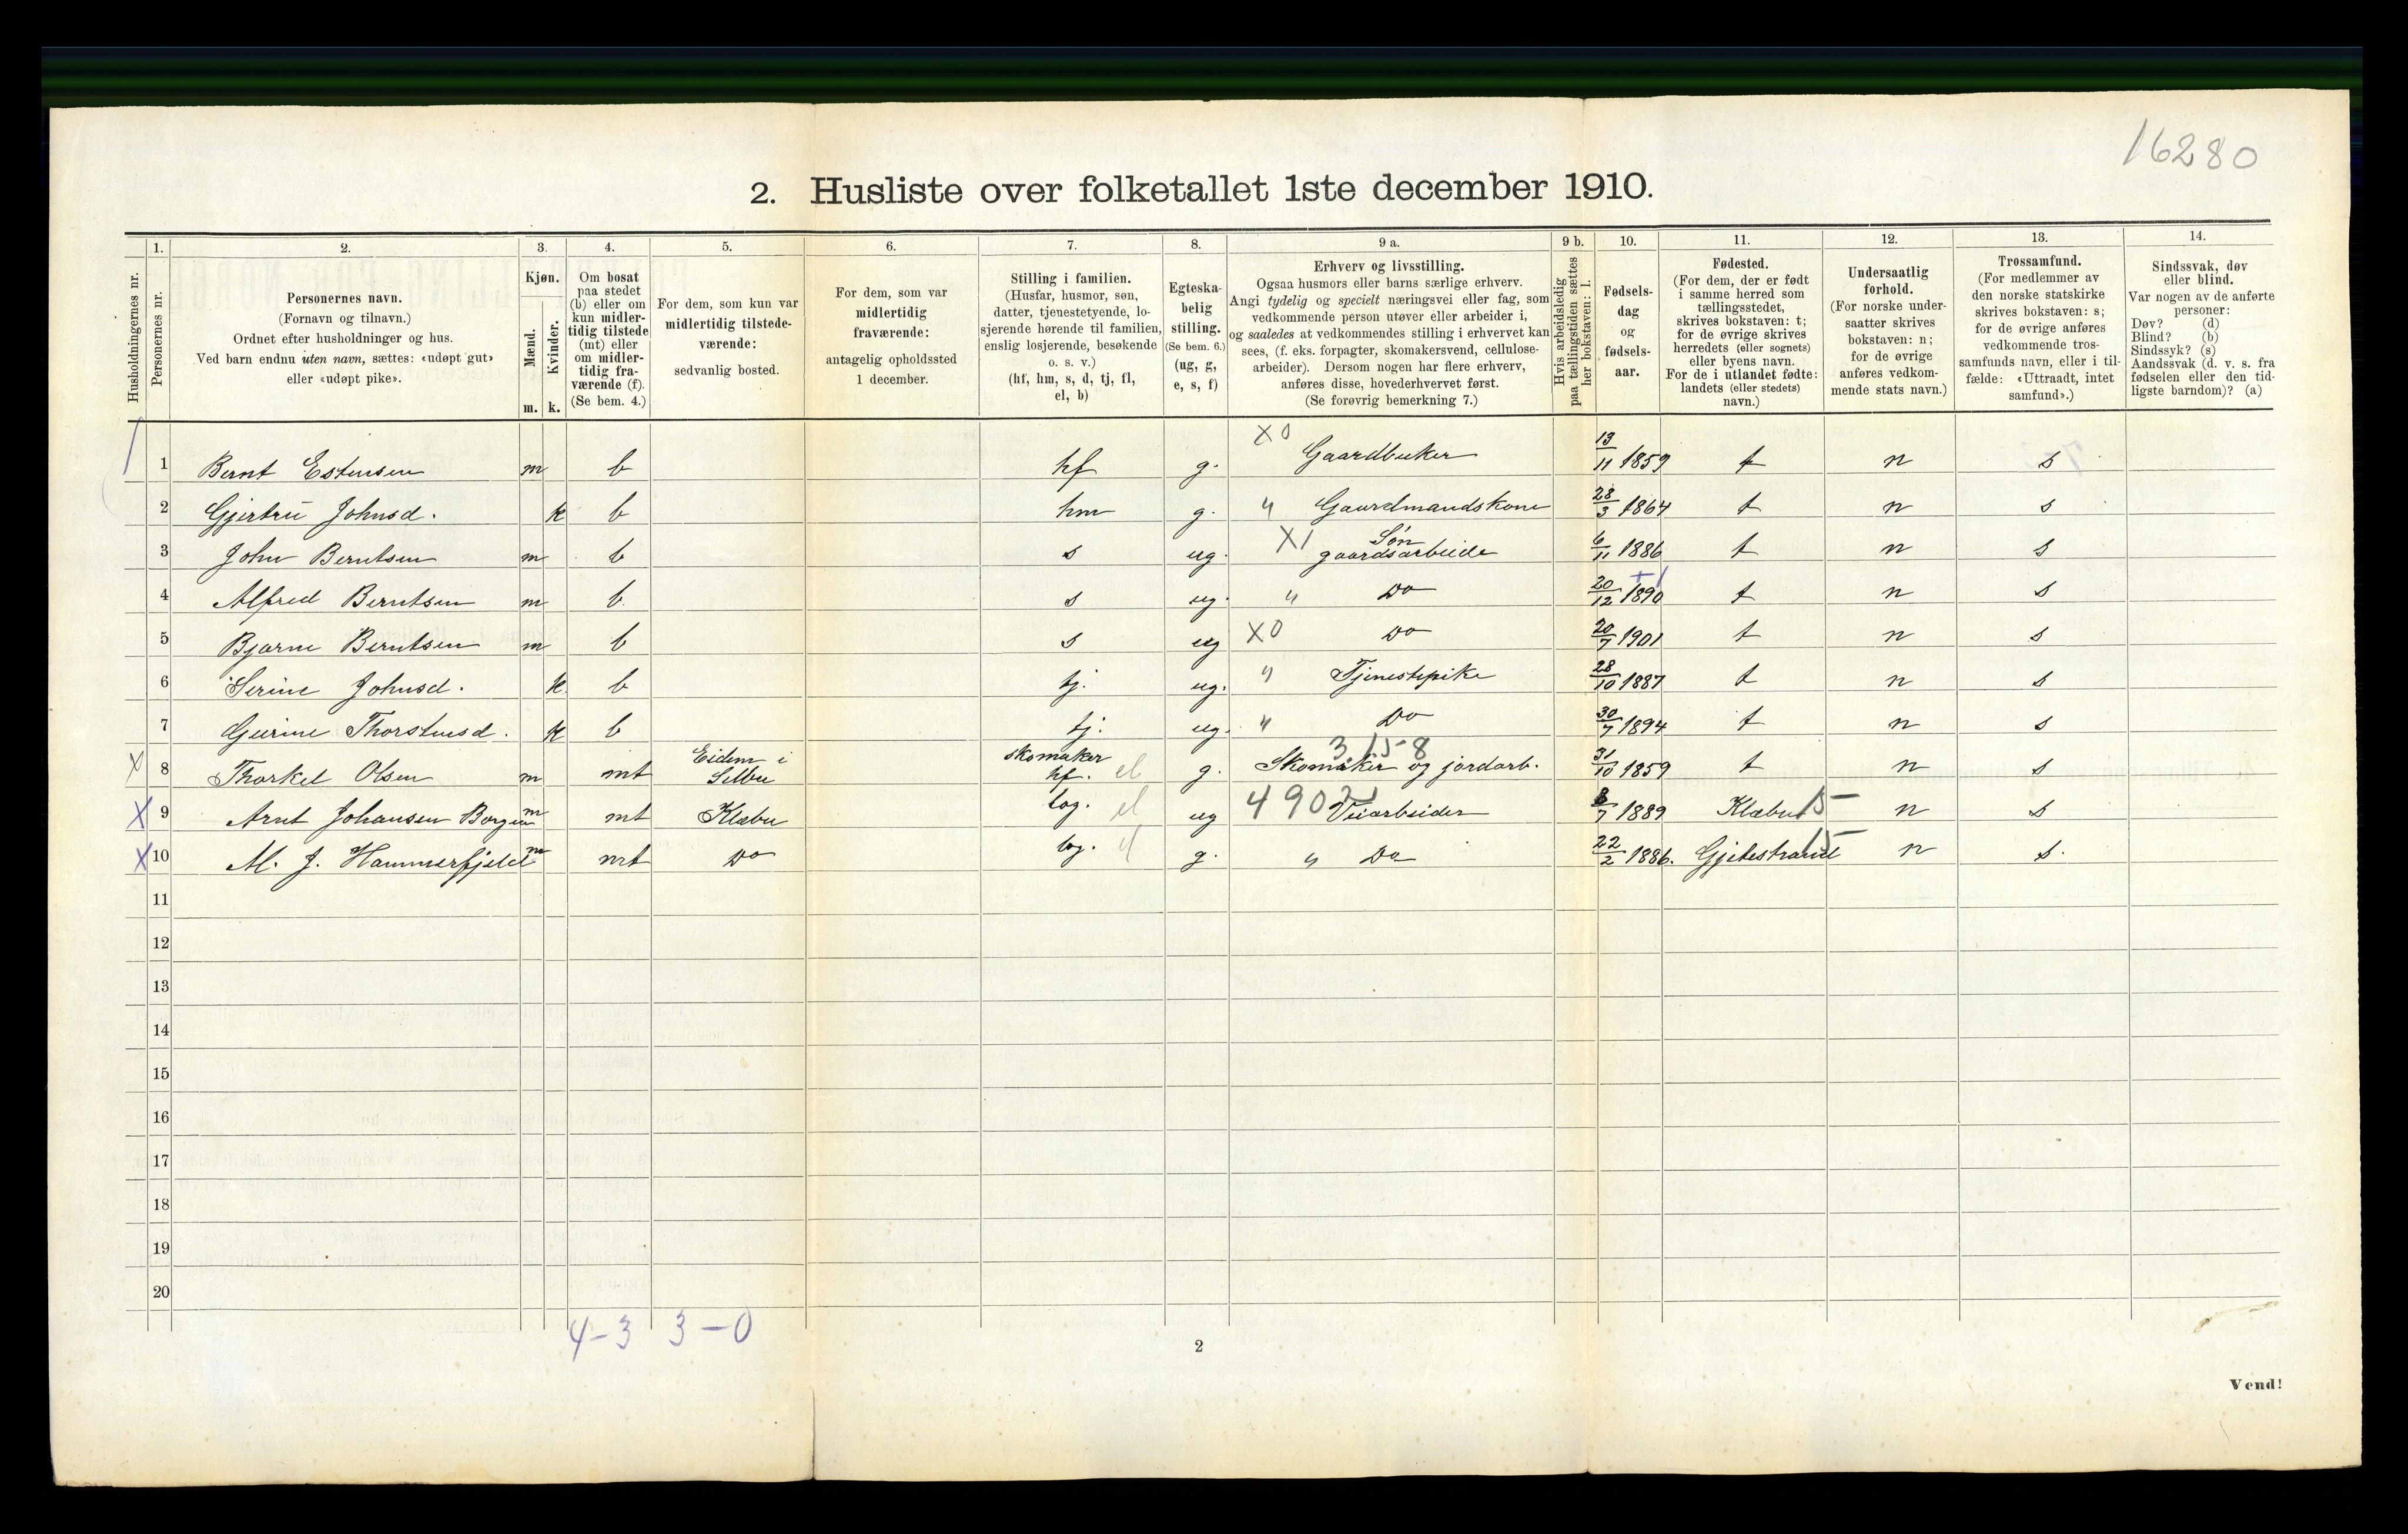 16280
2. Husliste over folketallet 1ste december 1910.
Husholdningernes nr.
1. Personernes nr.
2. Personernes navn.
(Fornavn og tilnavn.)
Ordnet efter husholdninger og hus.
Ved barn endnu uten navn, sættes: «udøpt gut»
eller «udøpt pike».
3. Kjøn.
Mænd. Kvinder.
m. k.
4. Om bosat
paa stedet
(b) eller om
kun midler-
tidig tilstede
(mt) eller
om midler-
tidig fra-
værende (f).
(Se bem. 4.)
5. For dem, som kun var
midlertidig tilstede-
værende:
sedvanlig bosted.
6. For dem, som var
midlertidig
fraværende:
antagelig opholdssted
1 december.
7. Stilling i familien.
(Husfar, husmor, søn,
datter, tjenestetyende, lo-
sjerende hørende til familien,
enslig losjerende, besøkende
o. s. v.)
(hf, hm, s, d, tj, fl,
el, b)
8. Egteska-
belig
stilling.
(Se bem. 6.)
(ug, g,
e, s, f)
9 a. Erhverv og livsstilling.
Ogsaa husmors eller barns særlige erhverv.
Angi tydelig og specielt næringsvei eller fag, som
vedkommende person utøver eller arbeider i,
og saaledes at vedkommendes stilling i erhvervet kan
sees, (f. eks. forpagter, skomakersvend, cellulose-
arbeider). Dersom nogen har flere erhverv,
anføres disse, hovederhvervet først.
(Se forøvrig bemerkning 7.)
9 b. Hvis arbeidsledig
paa tællingstiden sættes
her bokstaven: l.
10. Fødsels-
dag
og
fødsels-
aar.
11. Fødested.
(For dem, der er født
i samme herred som
tællingsstedet,
skrives bokstaven: t;
for de øvrige skrives
herredets (eller sognets)
eller byens navn.
For de i utlandet fødte:
landets (eller stedets)
navn.)
12. Undersaatlig
forhold.
(For norske under-
saatter skrives
bokstaven: n;
for de øvrige
anføres vedkom-
mende stats navn.)
13. Trossamfund.
(For medlemmer av
den norske statskirke
skrives bokstaven: s;
for de øvrige anføres
vedkommende tros-
samfunds navn, eller i til-
fælde: «Uttraadt, intet
samfund».)
14. Sindssvak, døv
eller blind.
Var nogen av de anførte
personer:
Døv? (d)
Blind? (b)
Sindssyk? (s)
Aandssvak (d. v. s. fra
fødselen eller den tid-
ligste barndom)? (a)
1 Bernt Estensen m b hf g. X0 Gaardbruker 13/11 1859 t n s
2 Gjertru Johnsd. k b hm g. " Gaardmandskone 28/3 1864 t n s
3 John Berntsen m b s ug. X1 Søn gaardsarbeide 6/11 1886 t n s
4 Alfred Berntsen m b s ug. " Do 20/12 1890 t n s
5 Bjarne Berntsen m b s ug X0 Do 20/7 1901 t n s
6 Serine Johnsd. k b tj. ug. " Tjenestepike 28/10 1887 t n s
7 Gurine Thorstensd. k b tj. ug. " Do 30/7 1894 t n s
X 8 Thorkel Olsen m mt Eidem i Selbu skomaker hf. el g. 3 15-8 Skomaker og jordarb. 31/10 1859 t n s
X 9 Arnt Johansen Borgen m mt Klæbu log. el ug 4902 Veiarbeider 8/7 1889 Klæbu 15 n s
X 10 M. J. Hammerfjeld m mt Do log. el g. " Do 22/2 1886. Gjetestrand 15 n s.
11
12
13
14
15
16
17
18
19
20
4-3 3-0
2
Vend!